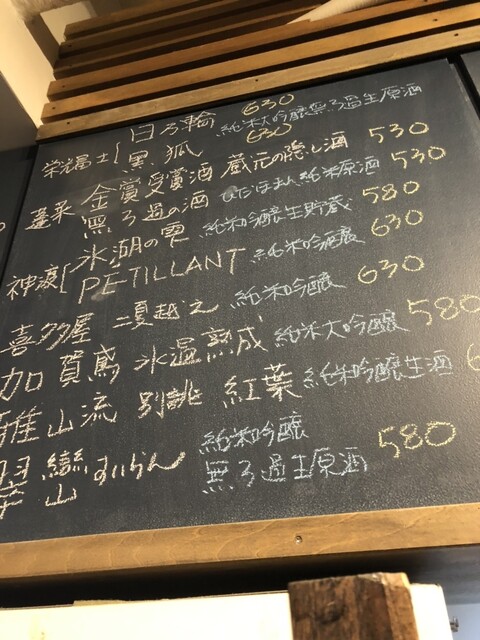 栄光冨士 白ろ輪 630
黒狐 630 純米大吟醸無ろ過生原酒
蓬莱 金賞受賞酒 蔵元の隠し酒 530
無ろ過の酒 ひだほまれ純米原酒 530
神渡 氷湖の雫 純米吟醸生貯蔵 580
PÉTILLANT 純米吟醸 630
喜多屋 二夏越え 純米吟醸 630
加賀鳶 氷温熟成 純米大吟醸 580
雅山流 別誂 紅葉 純米吟醸生酒
羽 すいかん 純米吟醸 580
山 無ろ過生原酒